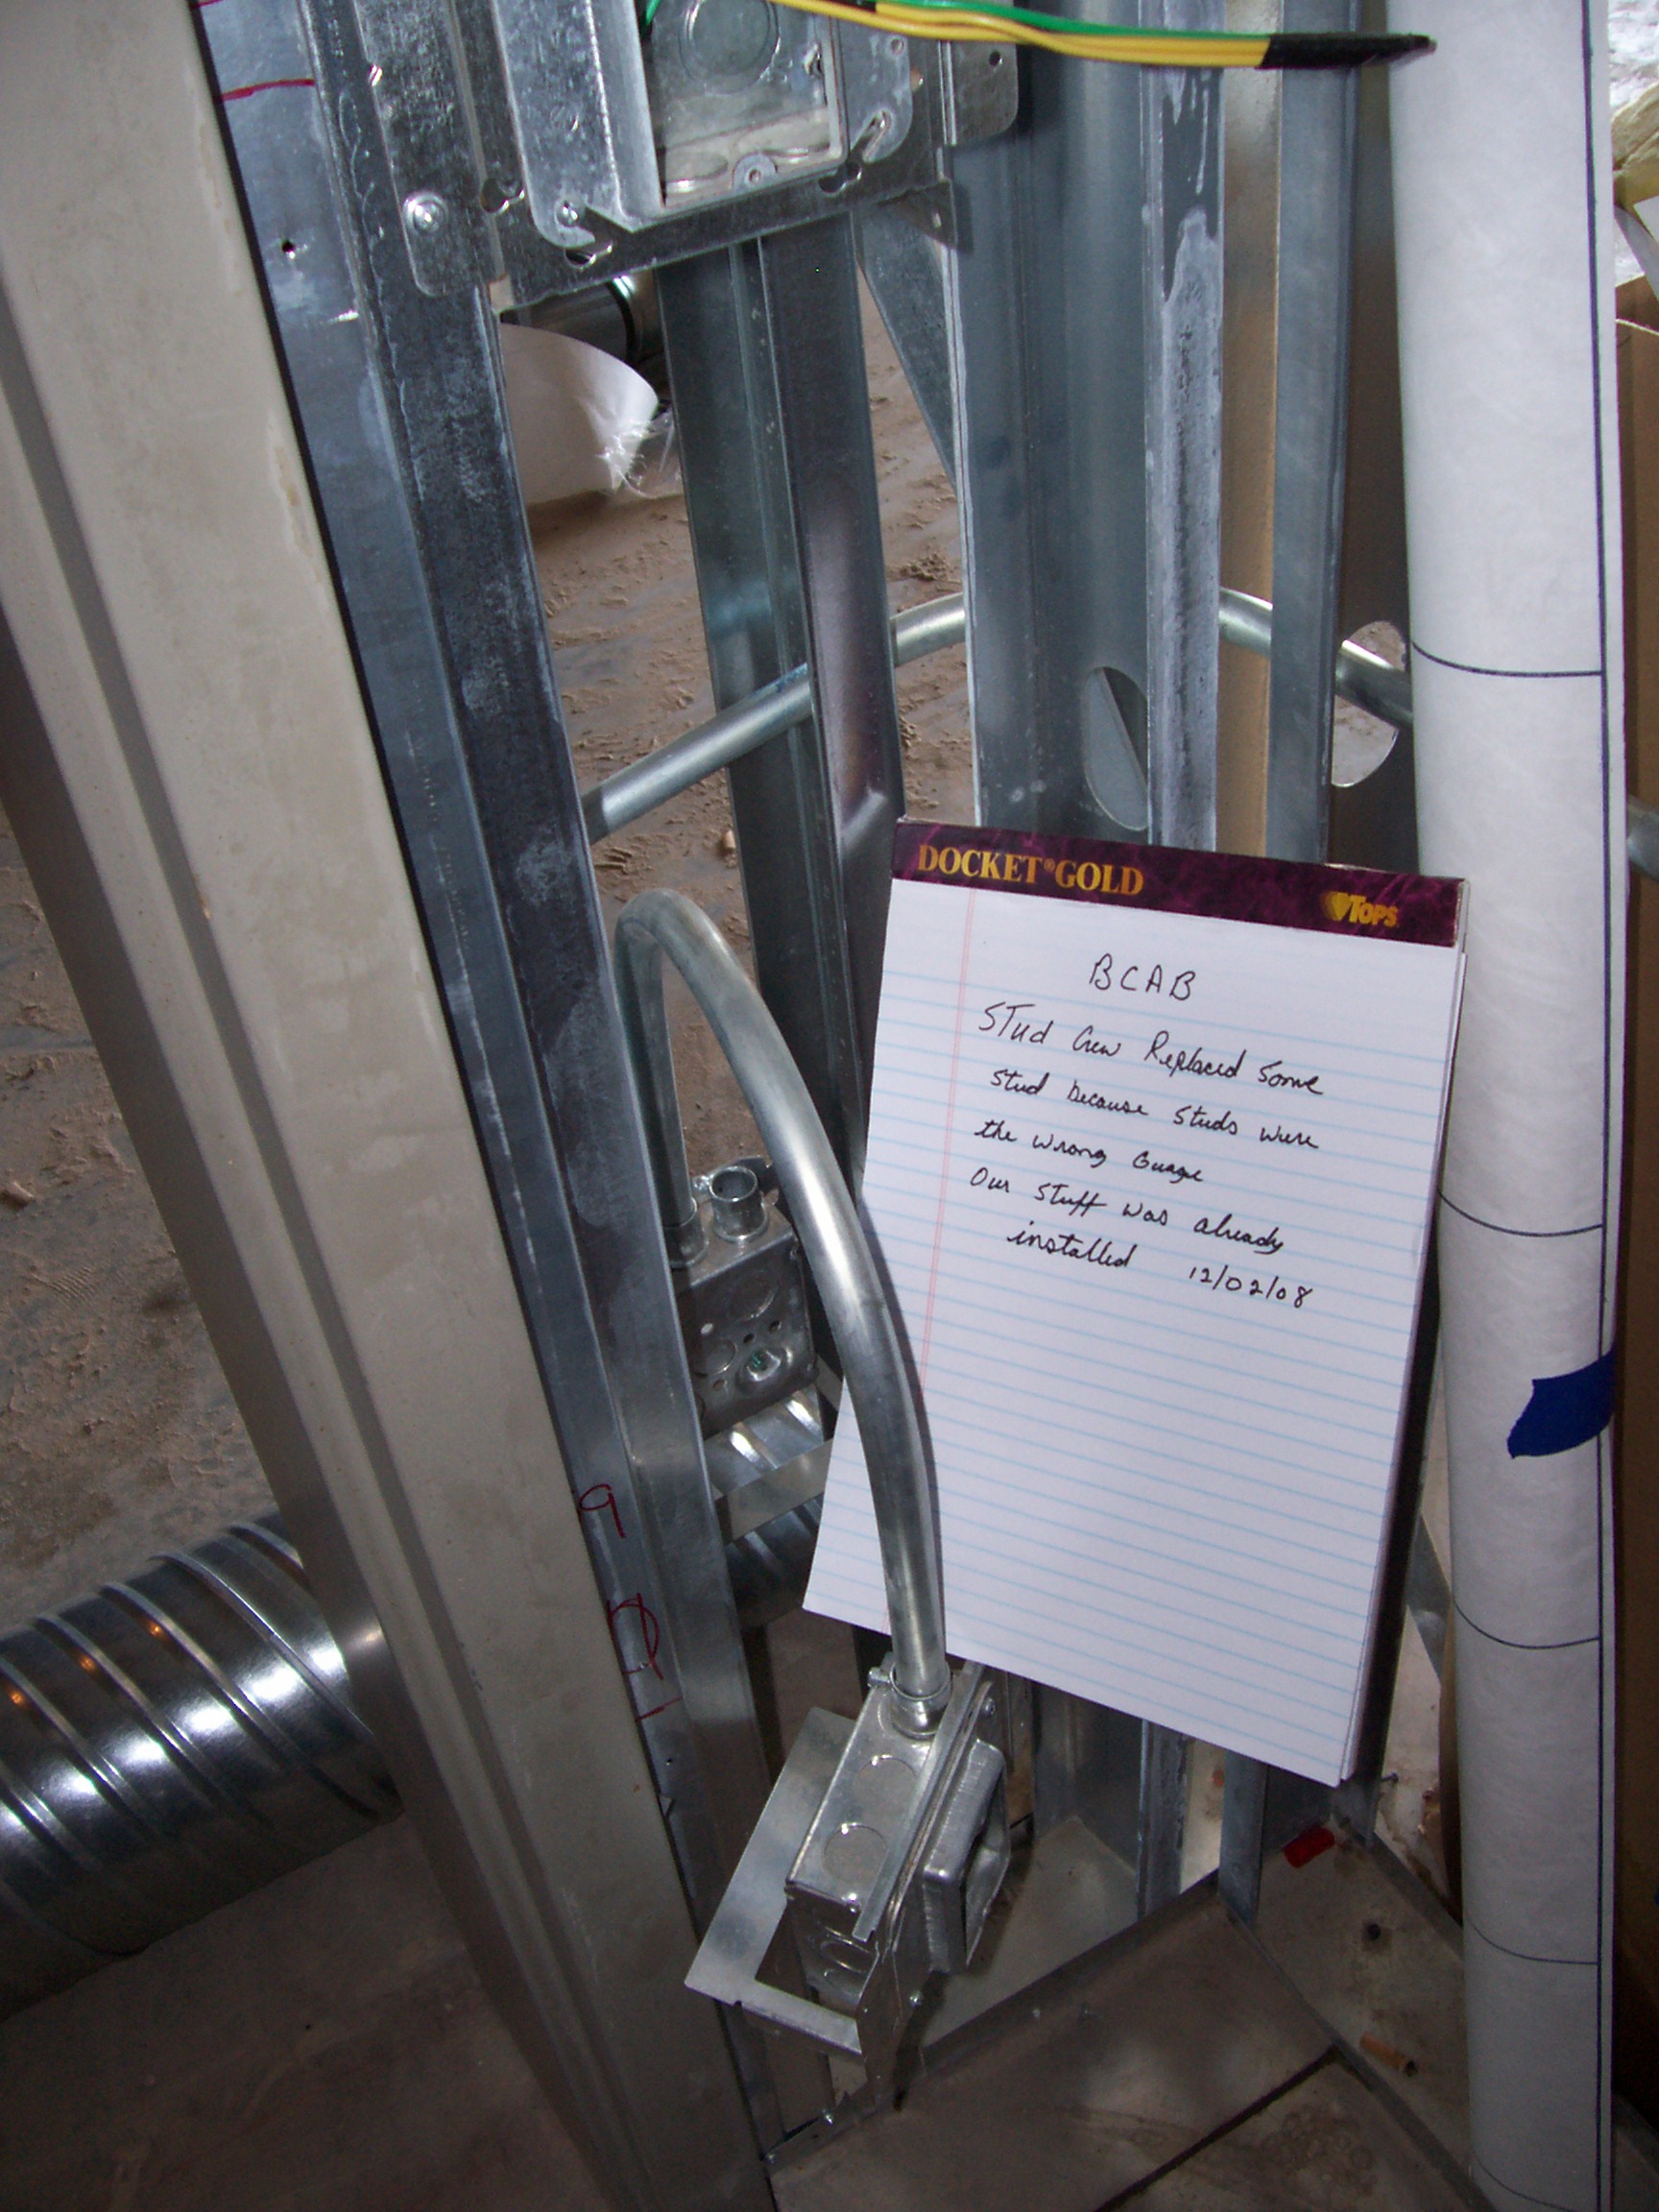 DOCKET® GOLD
TOPS
BCAB
Stud Crew Replaced Some
Stud because Studs were
the wrong Guage
Our stuff was already
installed 12/02/08
9